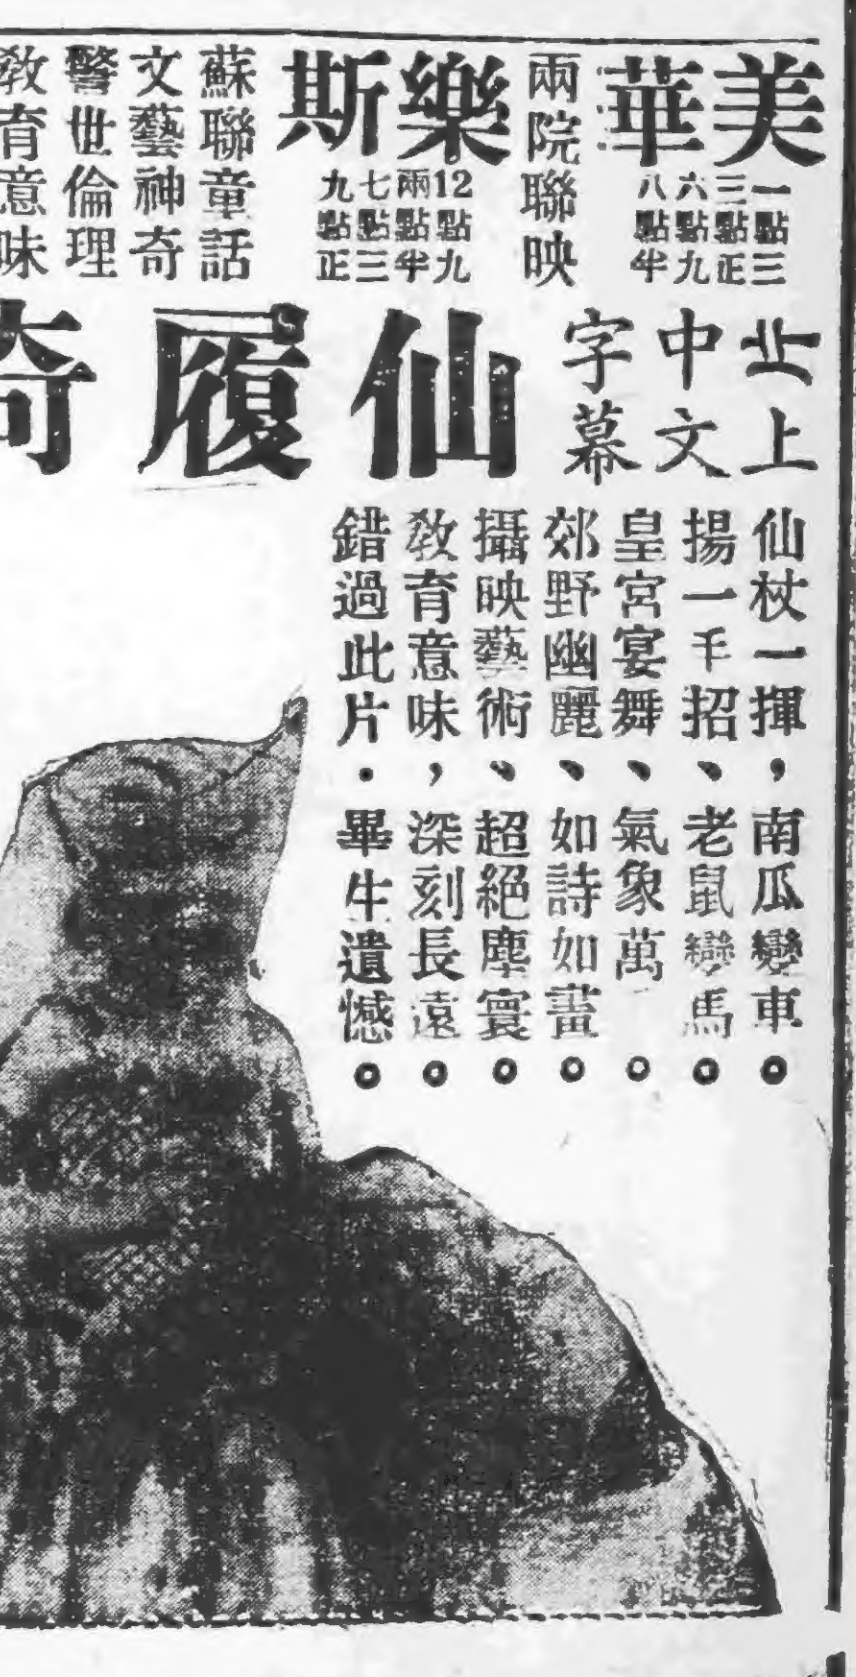 美華
一點三
三點正
六點九
八點半
兩院聯映
樂斯
12點九
兩點半
七點三
九點正
蘇聯童話
文藝神奇
警世倫理
教育意味
北上
中文
字幕
仙履奇
仙杖一揮，南瓜變車。
揚一手招、老鼠變馬。
皇宮宴舞、氣象萬。
郊野幽麗、如詩如畫。
攝映藝術、超絕塵寰。
教育意味，深刻長遠。
錯過此片．畢生遺憾。